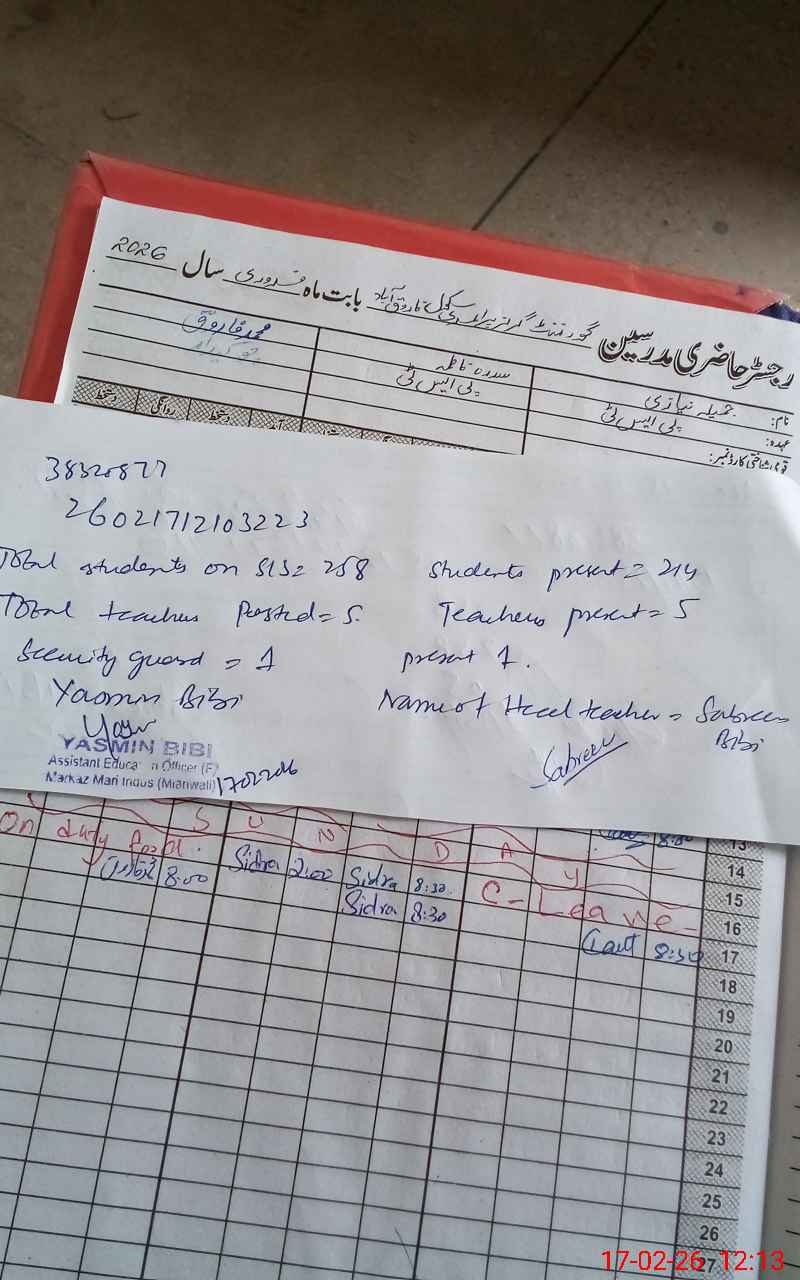 رجسٹر حاضری مدرسین گورنمنٹ گرلز پرائمری سکول فاروق آباد بابت ماہ فروری سال 2026
نام: جمیلہ نیازی سدرہ فاطمہ محمد فاروق
عہدہ: پی ایس ٹی پی ایس ٹی چوکیدار
قومی شناختی کارڈ نمبر:
دستخط روانگی دستخط
38320877
26021712103223
Total students on SIS= 258 Students present= 214
Total teachers Posted= 5. Teachers present= 5
Security guard = 1 present 1.
Yasmin Bibi Name of Head teacher = Sabreen Bibi
YASMIN BIBI
Assistant Education Officer (F)
Markaz Mari Indus (Mianwali)
Sabreen
8:30 13
S U N D A Y 14
On duty 8:00 Sidra 2:00 Sidra 8:30 C-Leave 15
Sidra 8:30 16
8:30 17
18
19
20
21
22
23
24
25
26
27
17-02-26 12:13